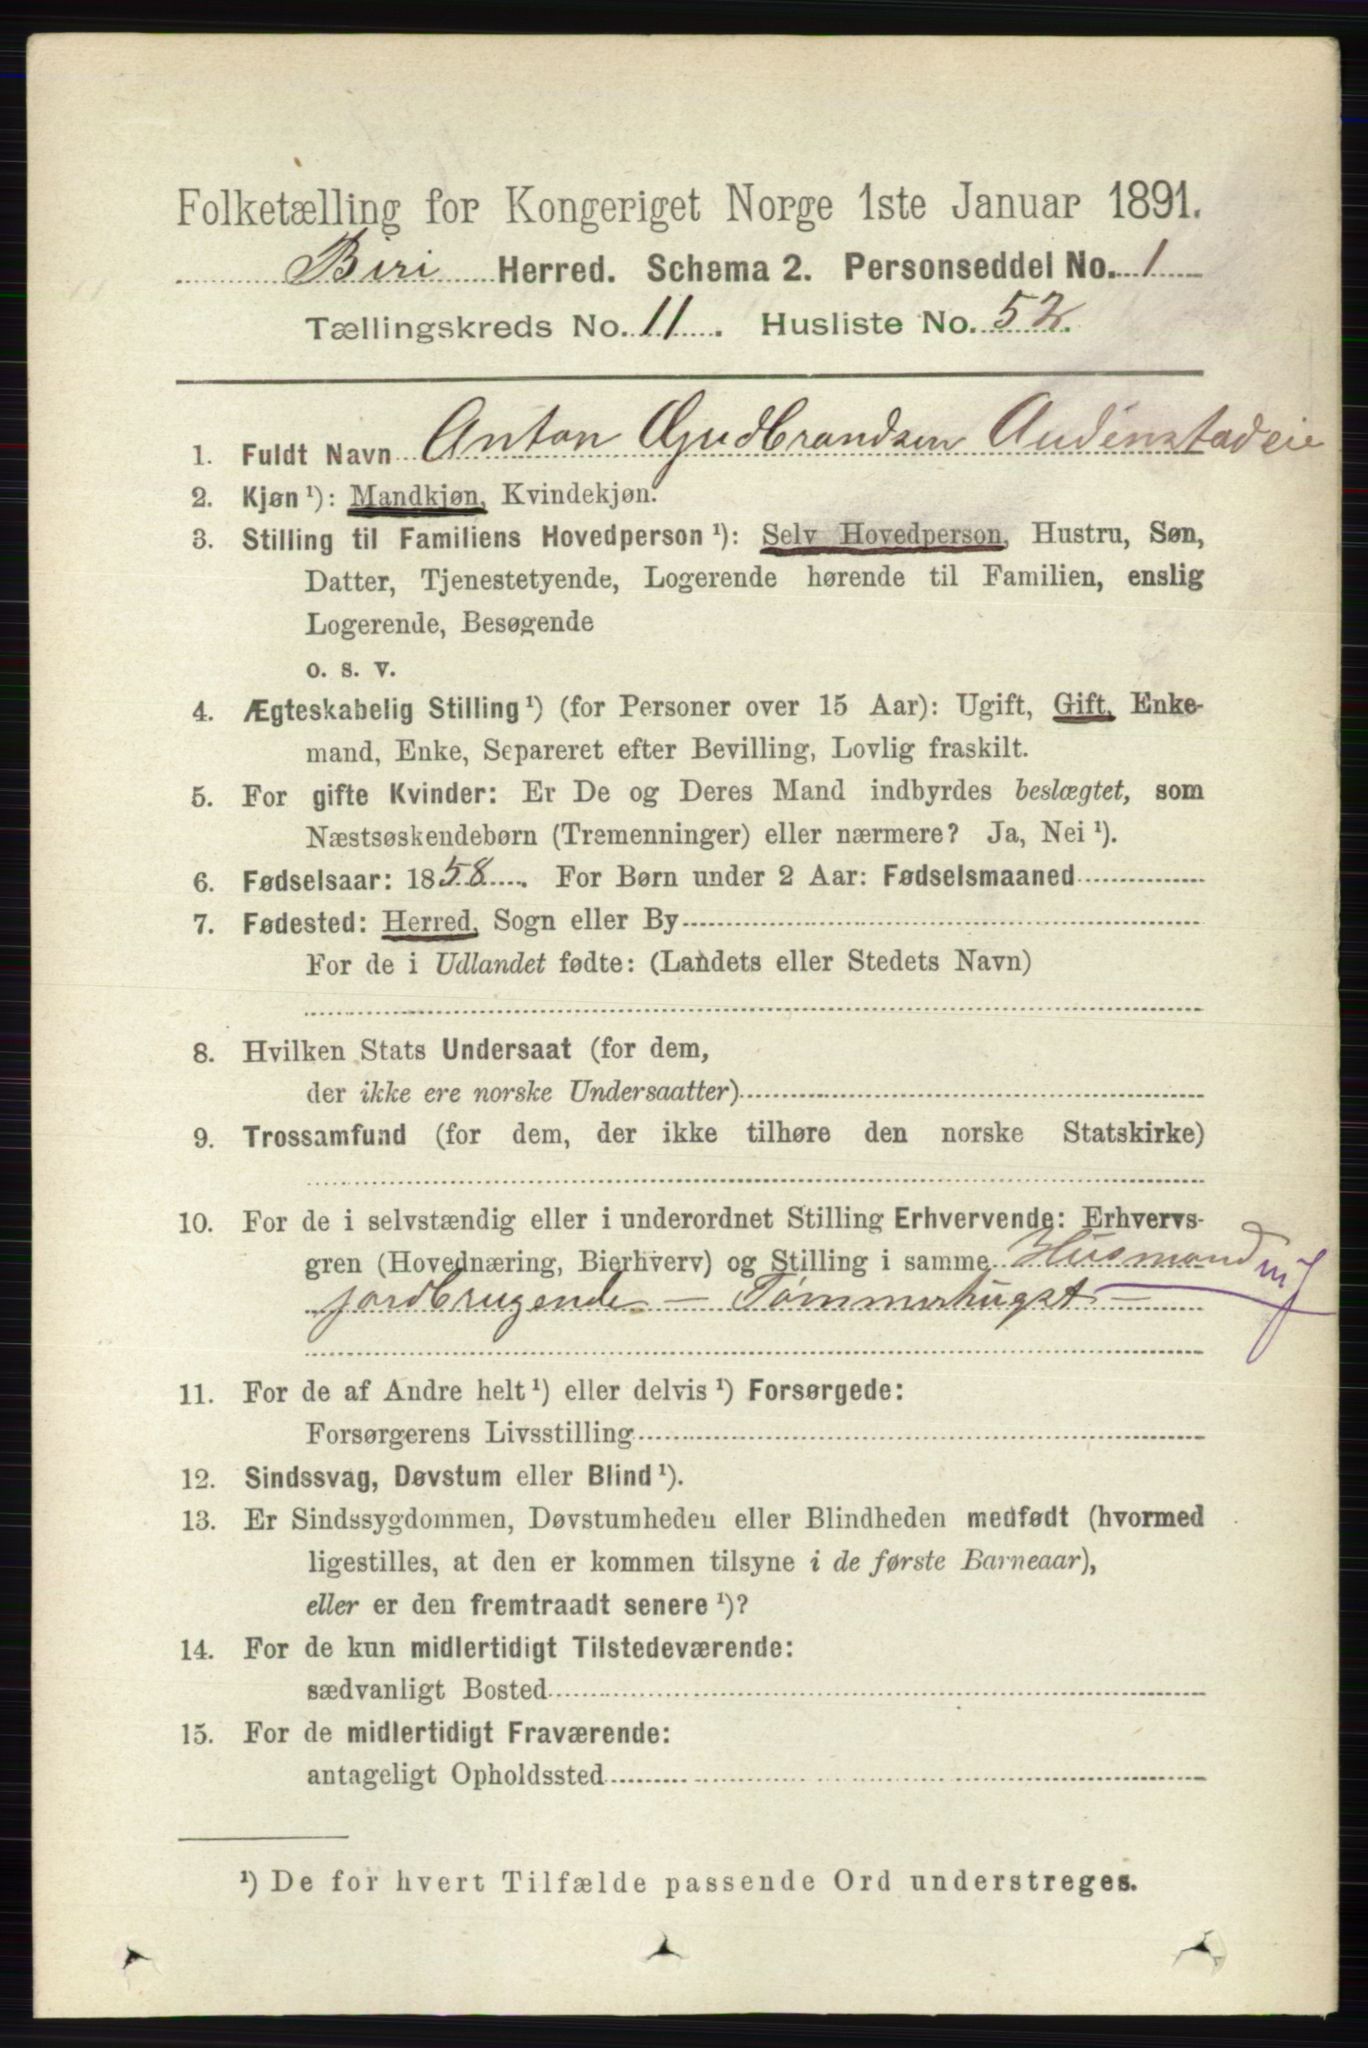 Folketælling for Kongeriget Norge 1ste Januar 1891.
Biri Herred. Schema 2. Personseddel No. 1
Tællingskreds No. 11. Husliste No. 52.
1. Fuldt Navn Anton Gudbrandsen Audenstadeie
2. Kjøn ¹): Mandkjøn, Kvindekjøn.
3. Stilling til Familiens Hovedperson ¹): Selv Hovedperson, Hustru, Søn,
Datter, Tjenestetyende, Logerende hørende til Familien, enslig
Logerende, Besøgende
o. s. v.
4. Ægteskabelig Stilling ¹) (for Personer over 15 Aar): Ugift, Gift, Enke-
mand, Enke, Separeret efter Bevilling, Lovlig fraskilt.
5. For gifte Kvinder: Er De og Deres Mand indbyrdes beslægtet, som
Næstsøskendebørn (Tremenninger) eller nærmere? Ja, Nei ¹).
6. Fødselsaar: 1858. For Børn under 2 Aar: Fødselsmaaned
7. Fødested: Herred, Sogn eller By
For de i Udlandet fødte: (Landets eller Stedets Navn)
8. Hvilken Stats Undersaat (for dem,
der ikke ere norske Undersaatter)
9. Trossamfund (for dem, der ikke tilhøre den norske Statskirke)
10. For de i selvstændig eller i underordnet Stilling Erhvervende: Erhvervs-
gren (Hovednæring, Bierhverv) og Stilling i samme Husmand mj
jordbrugende – Tømmerhugst –
11. For de af Andre helt ¹) eller delvis ¹) Forsørgede:
Forsørgerens Livsstilling
12. Sindssvag, Døvstum eller Blind ¹).
13. Er Sindssygdommen, Døvstumheden eller Blindheden medfødt (hvormed
ligestilles, at den er kommen tilsyne i de første Barneaar),
eller er den fremtraadt senere ¹)?
14. For de kun midlertidigt Tilstedeværende:
sædvanligt Bosted
15. For de midlertidigt Fraværende:
antageligt Opholdssted
¹) De for hvert Tilfælde passende Ord understreges.